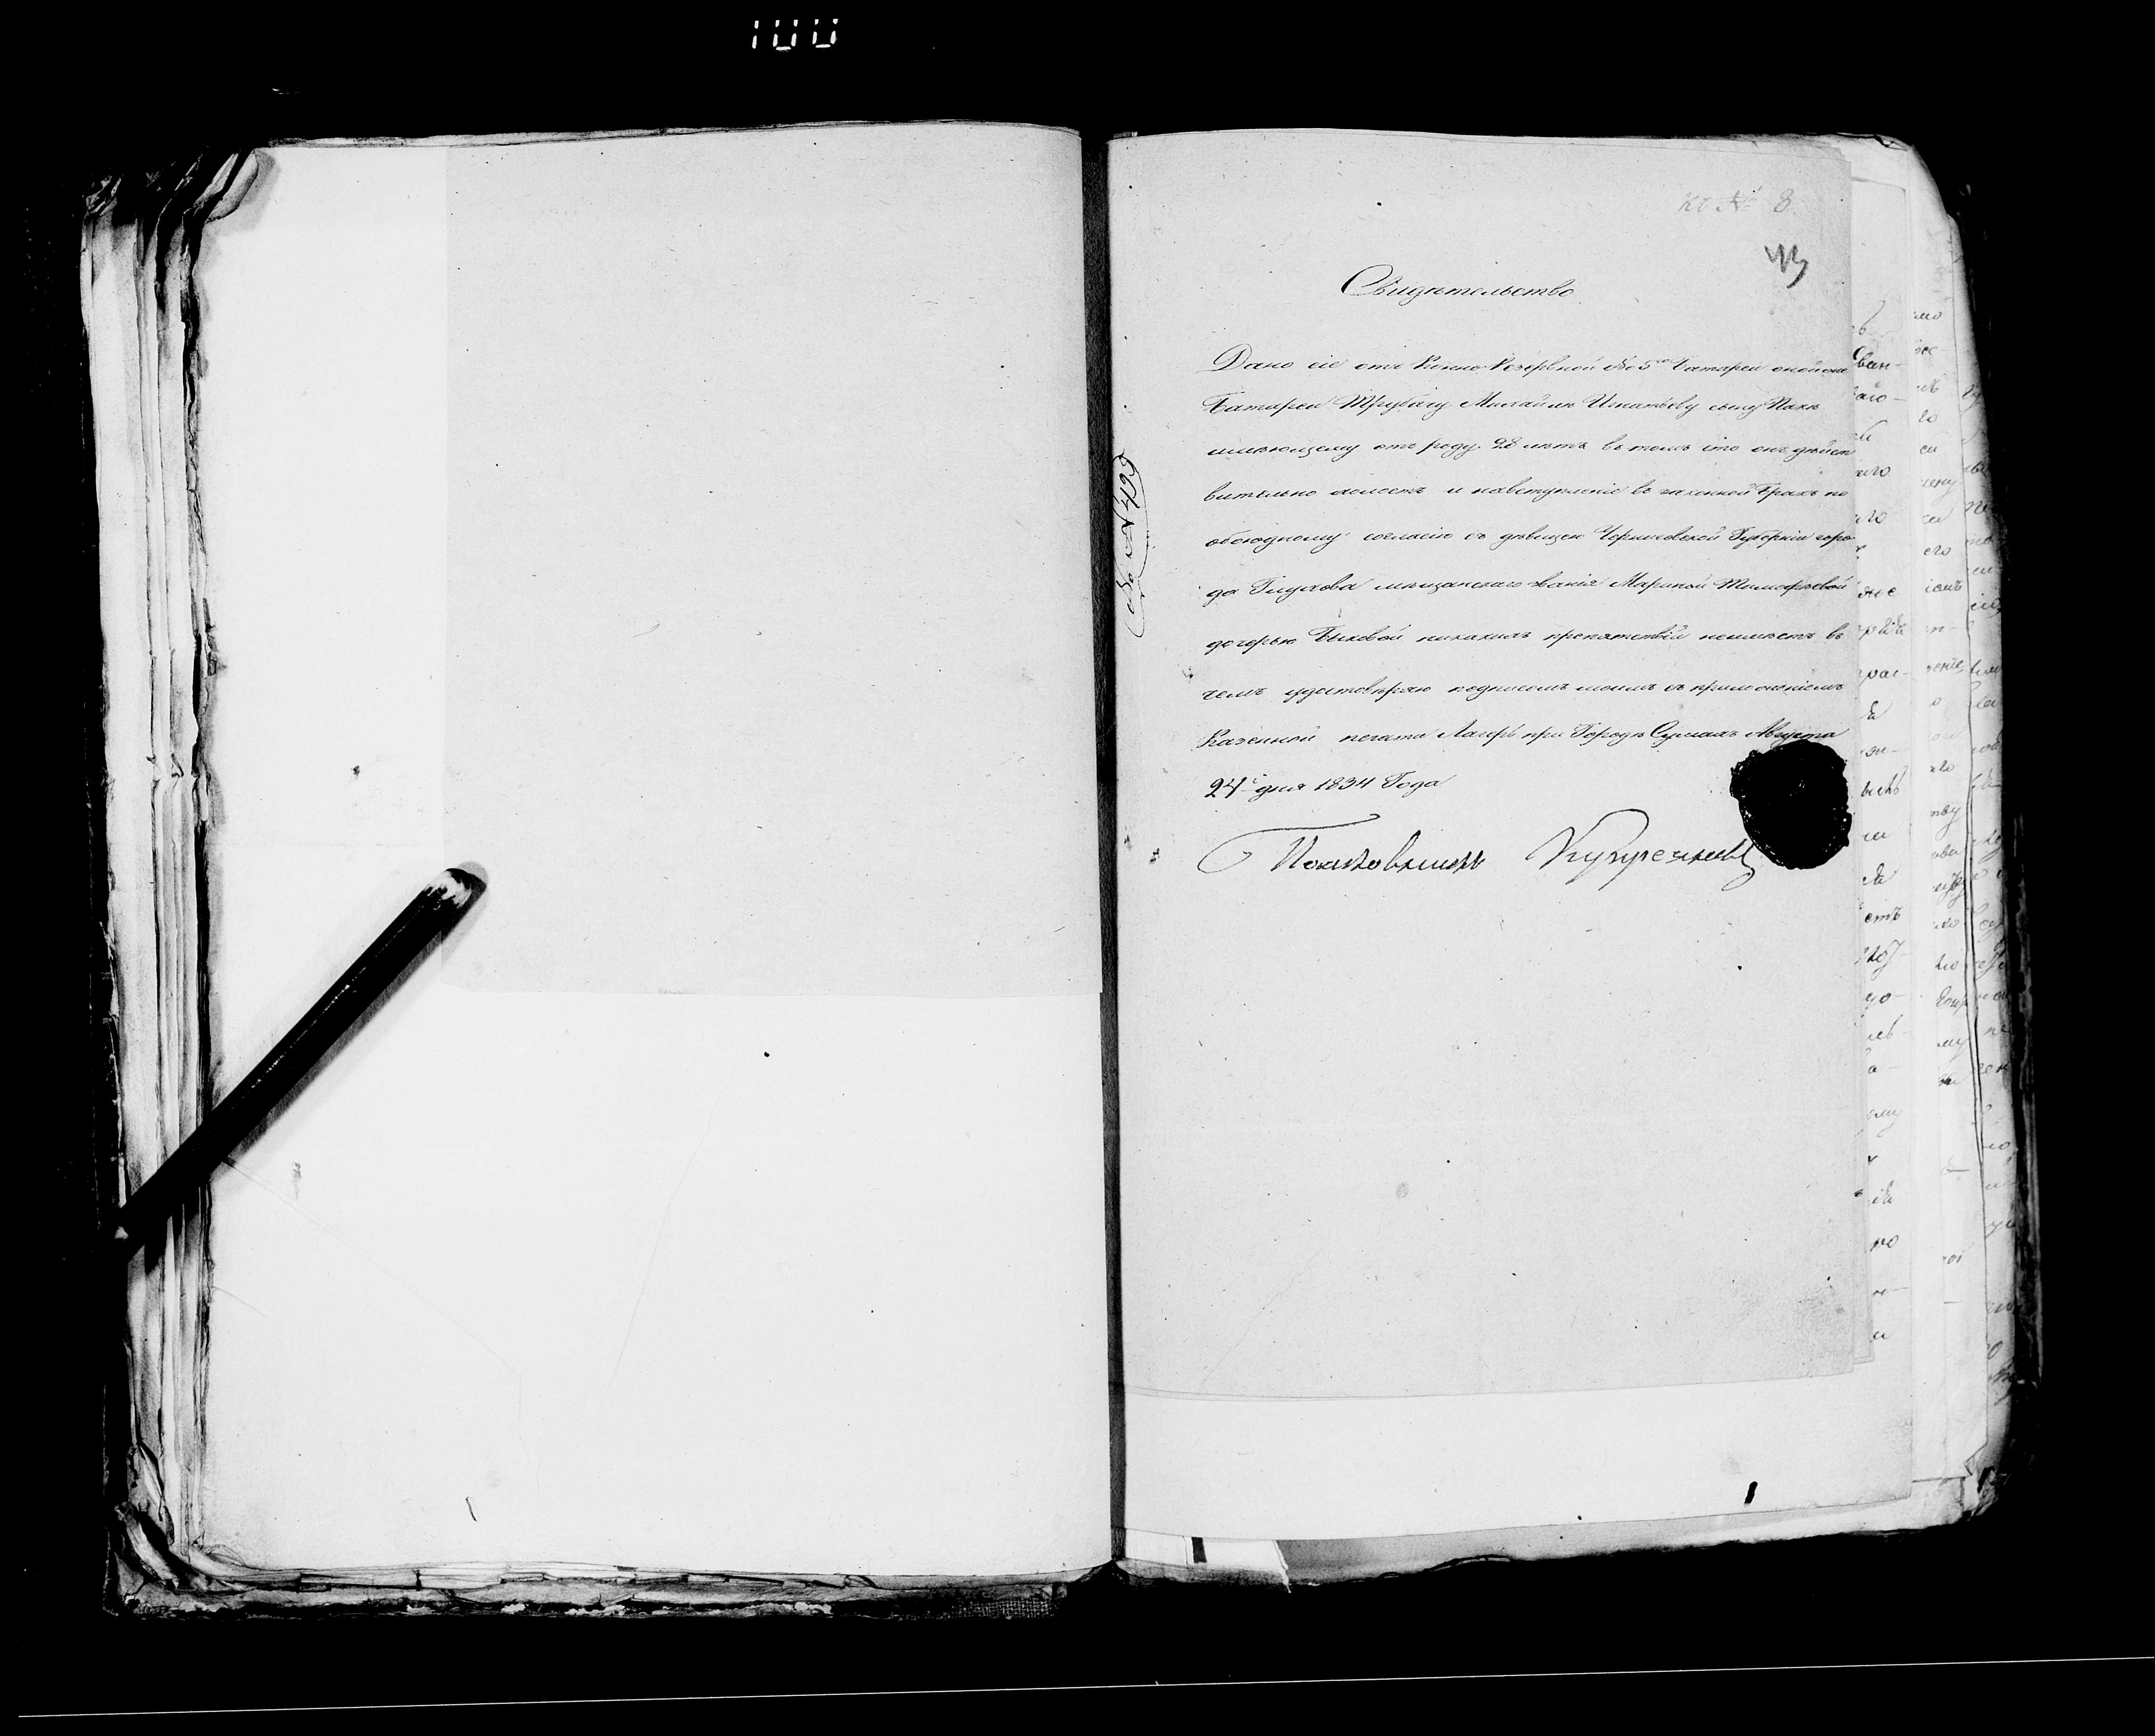 100
къ № 8
43
Свидѣтельство
Дано сіе отъ Конно-Резервной № 5го Батареи оной же
Батареи Трубачу Михайлѣ Игнатьеву сыну
имѣющему отъ роду 28 лѣтъ въ томъ что онъ дѣйст
вительно холостъ и навступленіе въ законной бракъ по
обоюдному согласію съ дѣвицею Черниговской Губерніи горо
да Глухова мѣщанскаго званія Мариной Тимофѣевой
дочерью Быковой никакихъ препятствій неимѣетъ въ
чемъ удостовѣряю подписомъ моимъ съ приложеніемъ
Казенной печати Лагерь при Городѣ Сумахъ Августа
24 дня 1834 Года
Полковникъ
№ 499